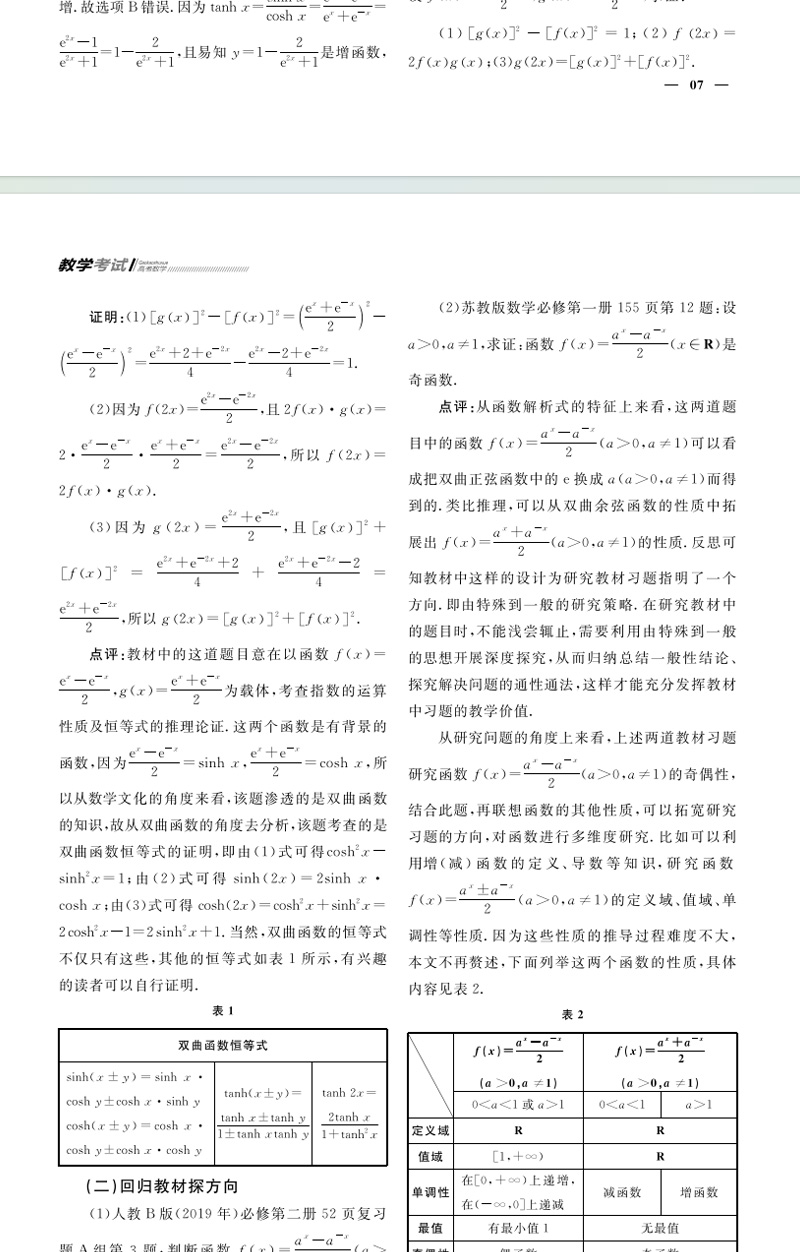 增.故选项B错误.因为 tanh x=sinh x/cosh x=(eˣ-e⁻ˣ)/(eˣ+e⁻ˣ)=
(e²ˣ-1)/(e²ˣ+1)=1-2/(e²ˣ+1),且易知 y=1-2/(e²ˣ+1)是增函数,
(1)[g(x)]²-[f(x)]²=1;(2)f(2x)=
2f(x)g(x);(3)g(2x)=[g(x)]²+[f(x)]².
— 07 —
教学考试 高考数学
证明:(1)[g(x)]²-[f(x)]²=((eˣ+e⁻ˣ)/2)²-
((eˣ-e⁻ˣ)/2)²=(e²ˣ+2+e⁻²ˣ)/4-(e²ˣ-2+e⁻²ˣ)/4=1.
(2)因为 f(2x)=(e²ˣ-e⁻²ˣ)/2,且 2f(x)·g(x)=
2·(eˣ-e⁻ˣ)/2·(eˣ+e⁻ˣ)/2=(e²ˣ-e⁻²ˣ)/2,所以 f(2x)=
2f(x)·g(x).
(3)因为 g(2x)=(e²ˣ+e⁻²ˣ)/2,且[g(x)]²+
[f(x)]²=(e²ˣ+e⁻²ˣ+2)/4+(e²ˣ+e⁻²ˣ-2)/4=
(e²ˣ+e⁻²ˣ)/2,所以 g(2x)=[g(x)]²+[f(x)]².
点评:教材中的这道题目意在以函数 f(x)=
(eˣ-e⁻ˣ)/2,g(x)=(eˣ+e⁻ˣ)/2为载体,考查指数的运算
性质及恒等式的推理论证.这两个函数是有背景的
函数,因为(eˣ-e⁻ˣ)/2=sinh x,(eˣ+e⁻ˣ)/2=cosh x,所
以从数学文化的角度来看,该题渗透的是双曲函数
的知识,故从双曲函数的角度去分析,该题考查的是
双曲函数恒等式的证明,即由(1)式可得cosh²x-
sinh²x=1;由(2)式可得 sinh(2x)=2sinh x·
cosh x;由(3)式可得 cosh(2x)=cosh²x+sinh²x=
2cosh²x-1=2sinh²x+1.当然,双曲函数的恒等式
不仅只有这些,其他的恒等式如表1所示,有兴趣
的读者可以自行证明.
表1
双曲函数恒等式
sinh(x±y)=sinh x·
cosh y±cosh x·sinh y
cosh(x±y)=cosh x·
cosh y±cosh x·cosh y
tanh(x±y)=
(tanh x±tanh y)/(1±tanh xtanh y)
tanh 2x=
2tanh x/(1+tanh²x)
(二)回归教材探方向
(1)人教B版(2019年)必修第二册52页复习
题A组第3题:判断函数 f(x)=(aˣ-a⁻ˣ)/2(a>
(2)苏教版数学必修第一册155页第12题:设
a>0,a≠1,求证:函数 f(x)=(aˣ-a⁻ˣ)/2(x∈R)是
奇函数.
点评:从函数解析式的特征上来看,这两道题
目中的函数 f(x)=(aˣ-a⁻ˣ)/2(a>0,a≠1)可以看
成把双曲正弦函数中的e换成a(a>0,a≠1)而得
到的.类比推理,可以从双曲余弦函数的性质中拓
展出 f(x)=(aˣ+a⁻ˣ)/2(a>0,a≠1)的性质.反思可
知教材中这样的设计为研究教材习题指明了一个
方向.即由特殊到一般的研究策略.在研究教材中
的题目时,不能浅尝辄止,需要利用由特殊到一般
的思想开展深度探究,从而归纳总结一般性结论、
探究解决问题的通性通法,这样才能充分发挥教材
中习题的教学价值.
从研究问题的角度上来看,上述两道教材习题
研究函数 f(x)=(aˣ-a⁻ˣ)/2(a>0,a≠1)的奇偶性,
结合此题,再联想函数的其他性质,可以拓宽研究
习题的方向,对函数进行多维度研究.比如可以利
用增(减)函数的定义、导数等知识,研究函数
f(x)=(aˣ±a⁻ˣ)/2(a>0,a≠1)的定义域、值域、单
调性等性质.因为这些性质的推导过程难度不大,
本文不再赘述,下面列举这两个函数的性质,具体
内容见表2.
表2
f(x)=(aˣ-a⁻ˣ)/2 f(x)=(aˣ+a⁻ˣ)/2
(a>0,a≠1) (a>0,a≠1)
0<a<1或a>1 0<a<1 a>1
定义域 R R
值域 [1,+∞) R
单调性 在[0,+∞)上递增,在(-∞,0]上递减 减函数 增函数
最值 有最小值1 无最值